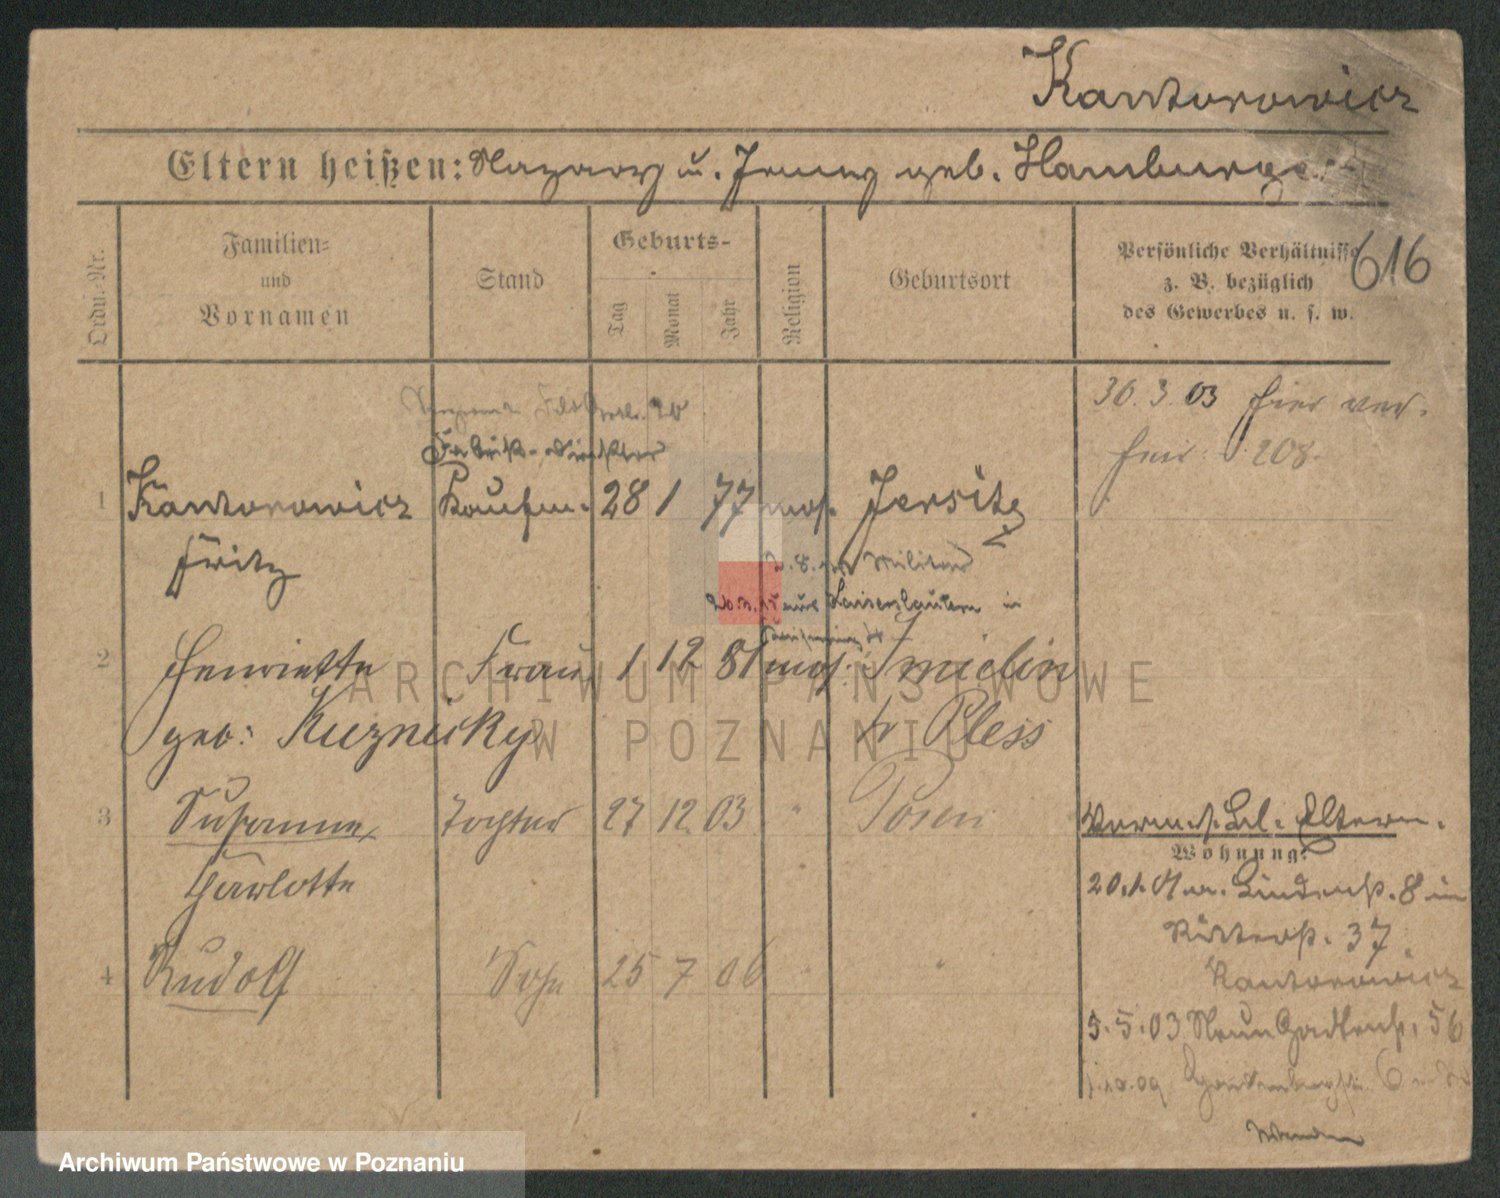 Kantorowicz
Eltern heißen: Nazary u. Jenny geb. Hamburger
Ordn.-Nr.
Familien=
und
Vornamen
Stand
Geburts-
Tag
Monat
Jahr
Religion
Geburtsort
Persönliche Verhältnisse
z. B. bezüglich
des Gewerbes u. s. w.
616
30. 3. 03 hier ver.
heir. 208.
Fabrik-Direktor
1 Kantorowicz Kaufm. 28 1 77 mos. Jersitz
Fritz
z. Militär
aus Kaiserslautern in
2 Henriette Frau 1 12 81 mos. Imielin
geb: Kuznicky b/ Pless
3 Susanne Tochter 27 12 03 " Posen
Charlotte
4 Rudolf Sohn 25 7 06 " "
Eltern.
Wohnung:
20.1. Lindenstr. 8 in
Ritterstr. 37
Kantorowicz
5. 5. 03 Neue Gartenstr. 56
1.10.09 6
ARCHIWUM PAŃSTWOWE
W POZNANIU
Archiwum Państwowe w Poznaniu